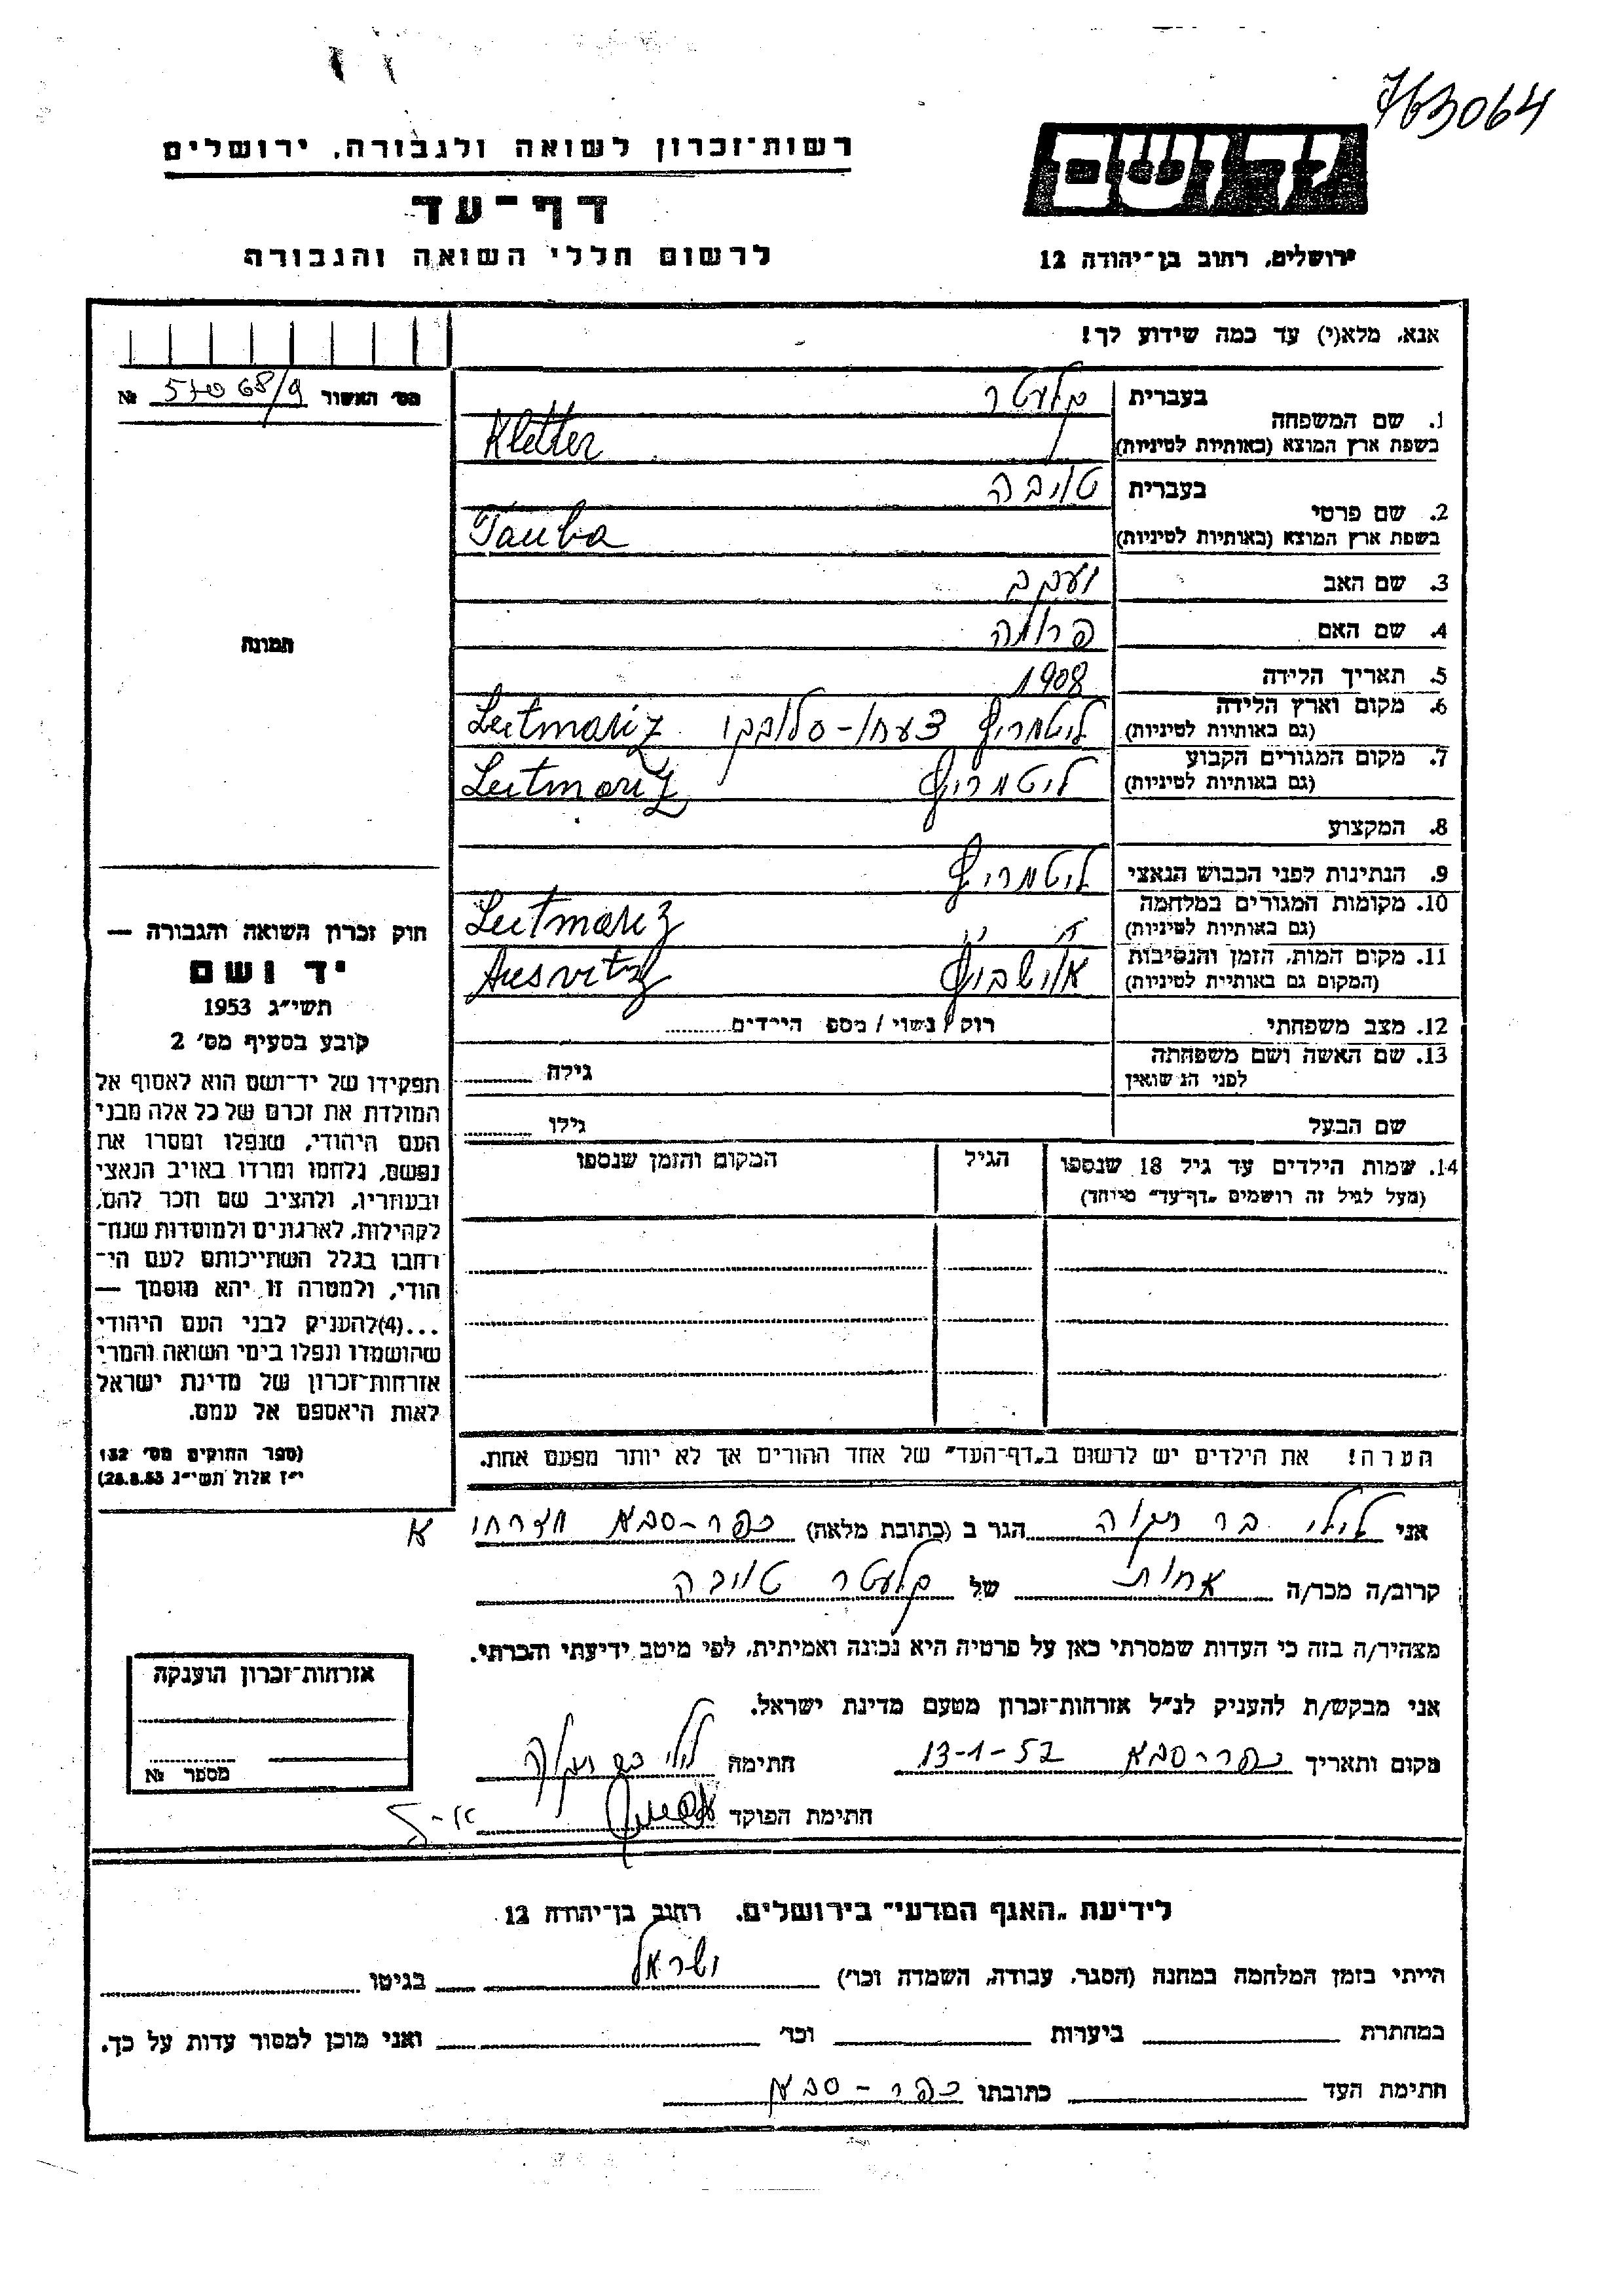 763064
רשות־זכרון לשואה ולגבורה, ירושלים
דף־עד
לרשום חללי השואה והגבורה
יד ושם
ירושלים, רחוב בן־יהודה 12
אנא, מלא(י) עד כמה שידוע לך!
מס' האשור 68/9 № 
1. שם המשפחה
בעברית קלעטר
בשפת ארץ המוצא (באותיות לטיניות) Kletter
2. שם פרטי
בעברית טויבה
בשפת ארץ המוצא (באותיות לטיניות) Tauba
3. שם האב יעקב
4. שם האם פרומה
5. תאריך הלידה 1908
6. מקום וארץ הלידה ליטמריץ Leitmariz
(גם באותיות לטיניות)
7. מקום המגורים הקבוע ליטמריץ Leitmariz
(גם באותיות לטיניות)
8. המקצוע
9. הנתינות לפני הכבוש הנאצי ליטמריץ
10. מקומות המגורים במלחמה Leitmariz
(גם באותיות לטיניות)
11. מקום המות, הזמן והנסיבות אושביץ Ausvitz
(המקום גם באותיות לטיניות)
12. מצב משפחתי רוק / נשוי / מספ הילדים
13. שם האשה ושם משפחתה
לפני הנשואין גילה
שם הבעל גילו
14. שמות הילדים עד גיל 18 שנספו הגיל המקום והזמן שנספו
(מעל לגיל זה רושמים „דף־עד" מיוחד)
הערה! את הילדים יש לרשום ב„דף־העד" של אחד ההורים אך לא יותר מפעם אחת.
תמונה
חוק זכרון השואה והגבורה —
יד ושם
תשי"ג 1953
קובע בסעיף מס' 2
תפקידו של יד־ושם הוא לאסוף אל
המולדת את זכרם של כל אלה מבני
העם היהודי, שנפלו ומסרו את
נפשם, נלחמו ומרדו באויב הנאצי
ובעוזריו, ולהציב שם וזכר להם,
לקהילות, לארגונים ולמוסדות שנח־
רבו בגלל השתייכותם לעם הי־
הודי, ולמטרה זו יהא מוסמך —
...(4) להעניק לבני העם היהודי
שהושמדו ונפלו בימי השואה והמרי
אזרחות־זכרון של מדינת ישראל
לאות היאספם אל עמם.
(ספר החוקים מס' 132
י"ז אלול תשי"ג 28.8.53)
אני לילי בר הגר ב (כתובת מלאה) כפר-סבא
קרוב/ה מכר/ה אחות של קלעטר טויבה
מצהיר/ה בזה כי העדות שמסרתי כאן על פרטיה היא נכונה ואמיתית, לפי מיטב ידיעתי והכרתי.
אני מבקש/ת להעניק לנ"ל אזרחות־זכרון מטעם מדינת ישראל.
מקום ותאריך כפר-סבא 13-1-57 חתימה לילי
חתימת הפוקד
אזרחות־זכרון הוענקה
מספר №
לידיעת „האגף המדעי" בירושלים, רחוב בן־יהודה 12
הייתי בזמן המלחמה במחנה (הסגר, עבודה, השמדה וכו') ישראל בגיטו
במחתרת ביערות וכו' ואני מוכן למסור עדות על כך.
חתימת העד כתובתו כפר-סבא